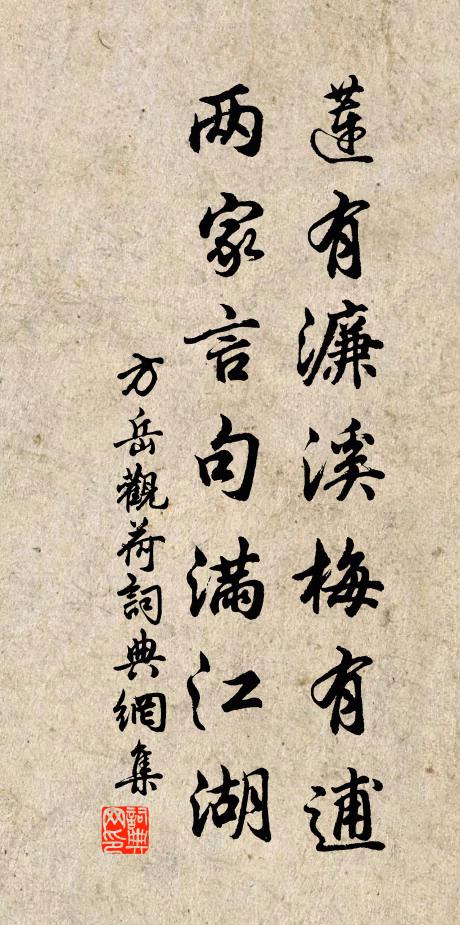 蓮有濂溪梅有逋
两家言句满江湖
方岳觀荷詞典網集
詞典网印